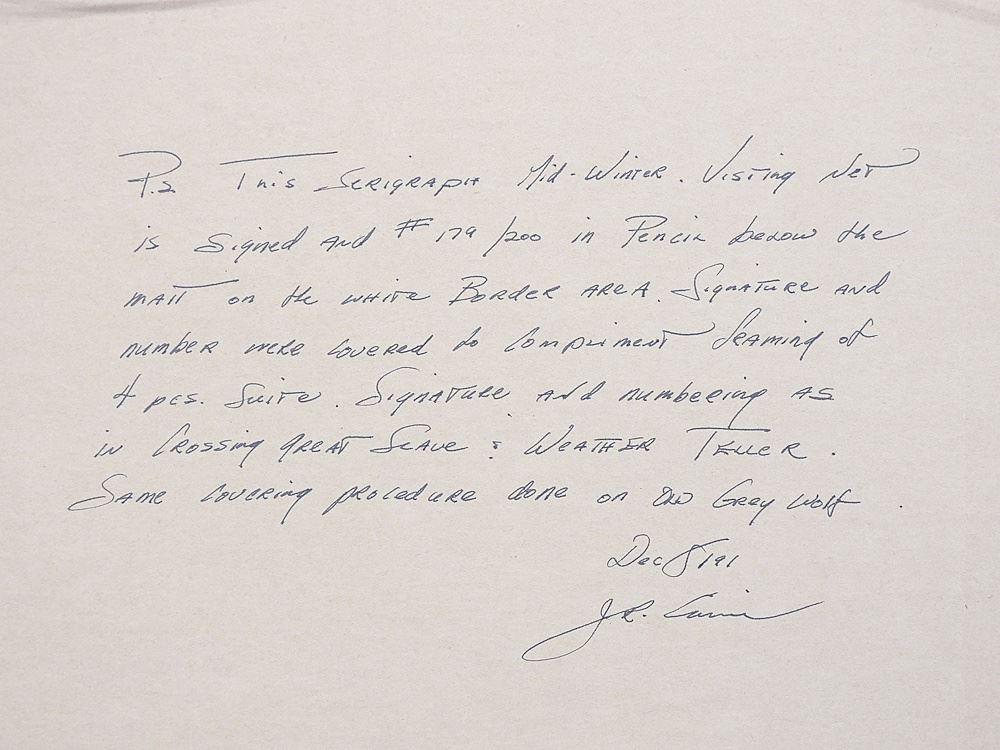 P.S This Serigraph Mid-Winter. Visiting Net
is signed and # 179/200 in Pencil below the
matt on the white Border area. Signature and
number were covered to compliment framing of
4 pcs. Suite. Signature and numbering as
in Crossing Great Slave : Weather Teller.
Same covering procedure done on Old Grey Wolf.
Dec 8/91
J.R.